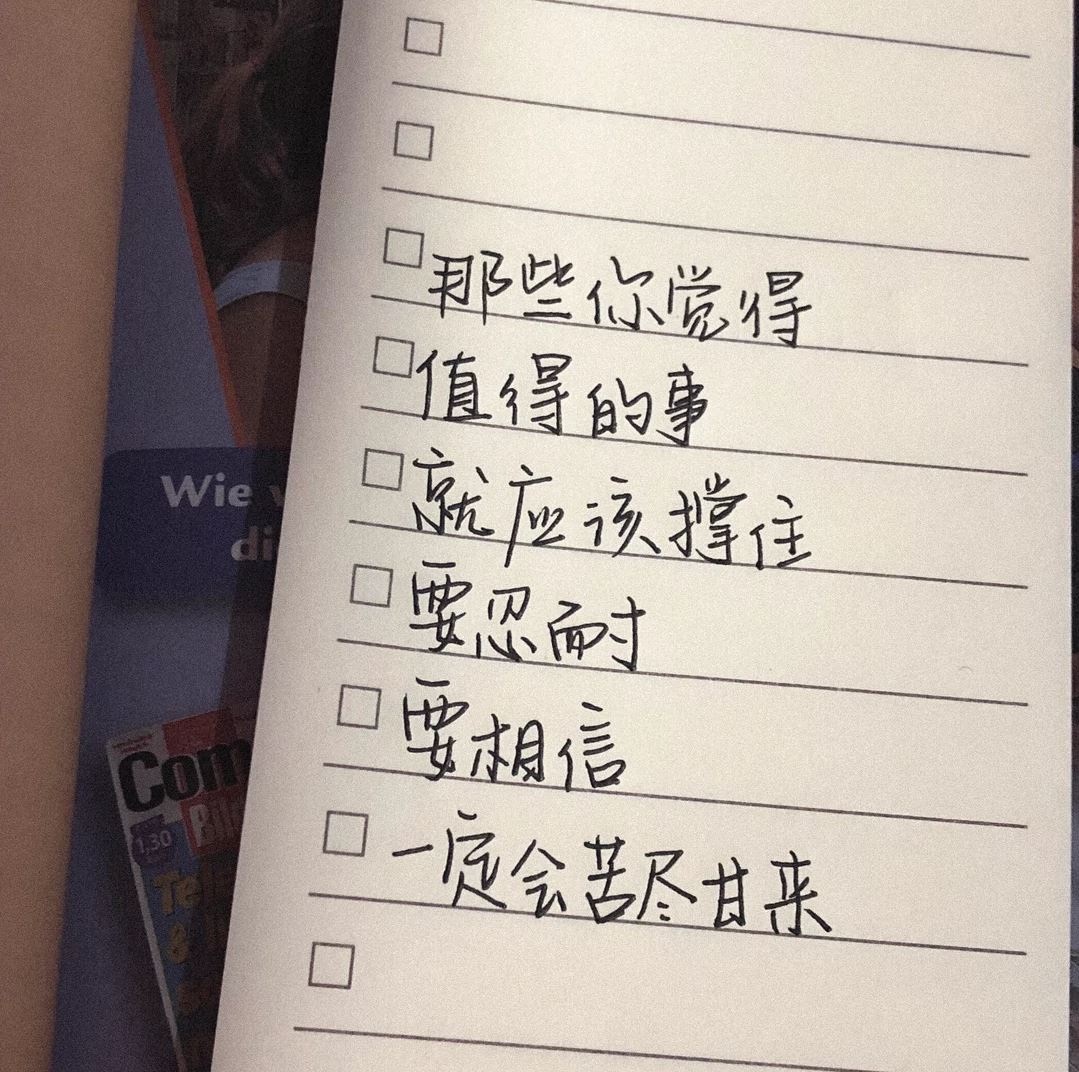 那些你觉得
值得的事
就应该撑住
要忍耐
要相信
一定会苦尽甘来
Wie
di
Com
1,30
Te
&